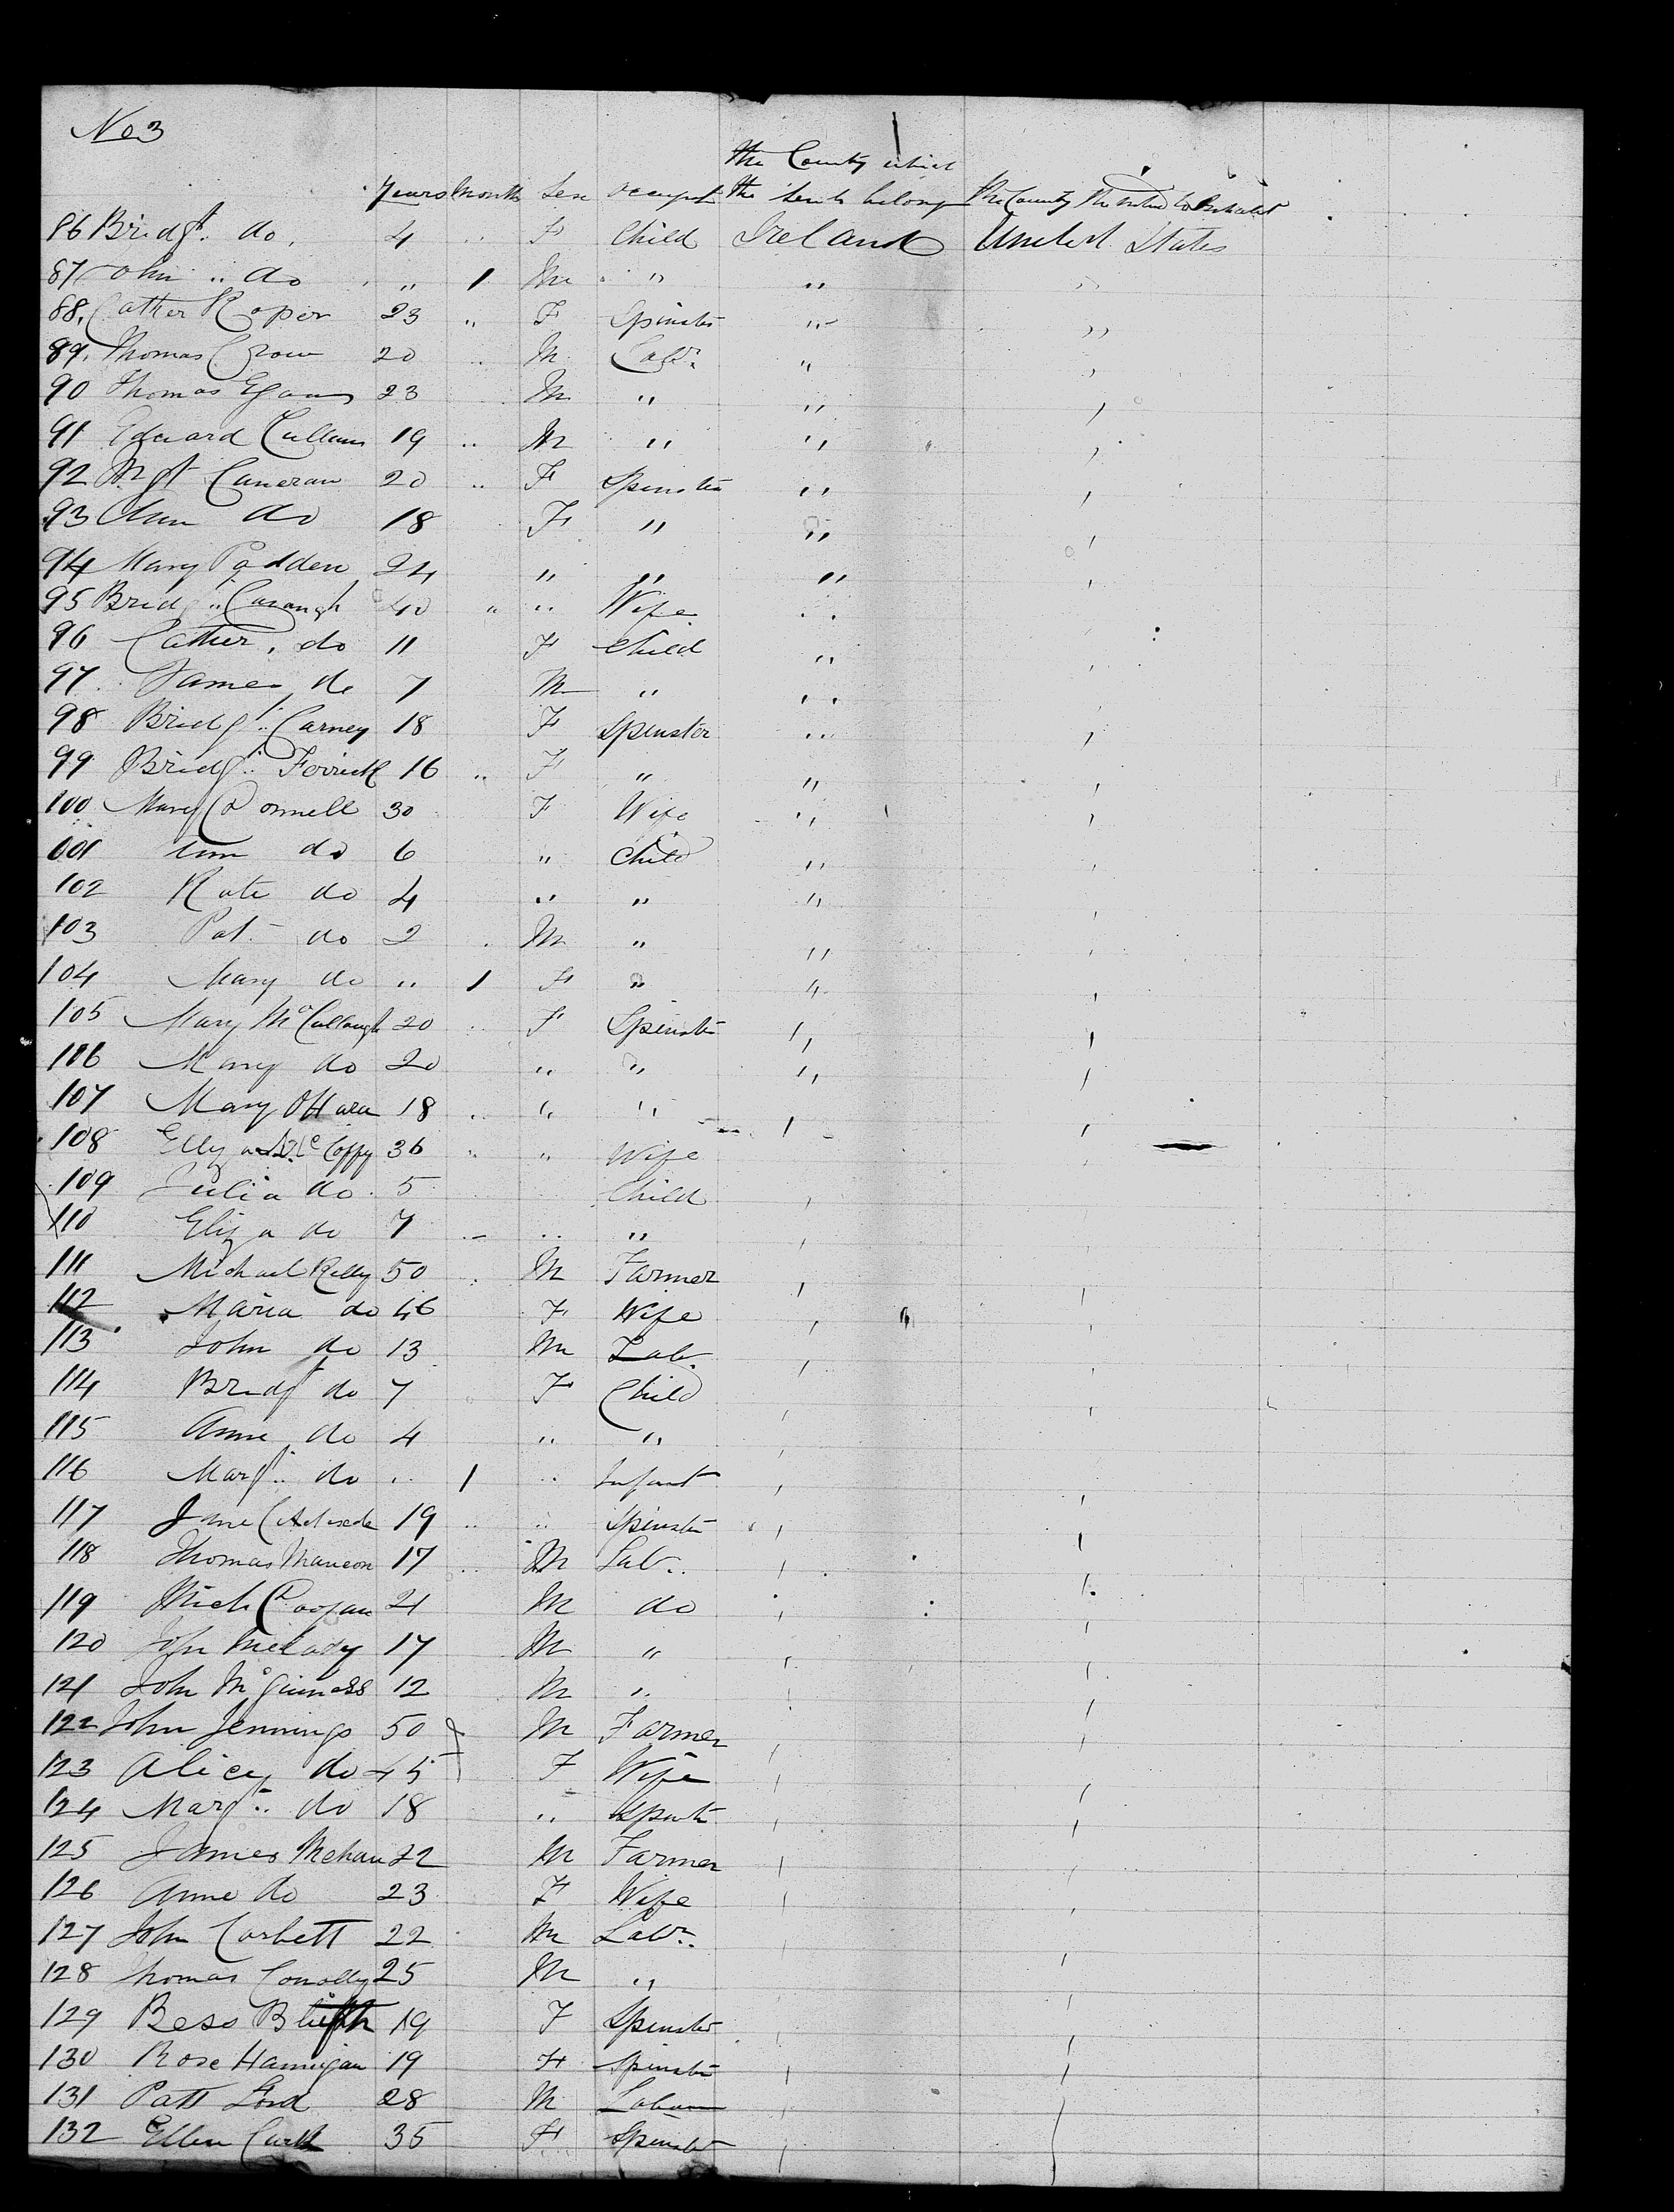 No 3
the County which
Years Months Sex Occupat the belong the County the intend to Inhabit
86 Bridgt. do. 4 .. F Child Ireland United States
87 John .. do .. 1 M " " "
88. Cather Roper 23 .. F Spinster " "
89. Thomas Crow 20 .. M Labr. " "
90 Thomas Egan 23 M " " "
91 Edward Cullen 19 .. M " " "
92 Mgt Caneran 20 .. F Spinster " "
93 Ann do 18 F " " "
94 Mary Padden 24 " " " "
95 Bridg.. Cavangh 40 " " Wife "
96 Cather. do 11 F Child " "
97 James do 7 M " " "
98 Bridg.. Carney 18 F Spinster " "
99 Bridg.. Ferrick 16 .. F " " "
100 Mary Connell 30 F Wife " "
101 Ann do 6 " Child " "
102 Kate do 4 " " " "
103 Pat. do 2 . M " " "
104 Mary do .. 1 F " " "
105 Mary McCullaugh 20 .. F Spinster " "
106 Mary do 20 " " " "
107 Mary OHara 18 .. " " " "
108 Coffy 36 " " Wife
109 Julia do. 5 Child "
110 Eliza do 7 .. .. " "
111 Michael Kelly 50 . M Farmer "
112 Maria do 46 F Wife " "
113 John do 13 M Lab. " "
114 Bridgt do 7 F Child " "
115 Anne do 4 " " " "
116 Margt.. do .. 1 .. Infant "
117 Jane 19 .. .. Spinster " "
118 Thomas 17 .. M Lab.. " "
119 Mich Coogan 21 M do " "
120 John Melady 17 M " " "
121 John McGinness 12 M " " "
122 John Jennings 50 M Farmer " "
123 Alicey do 45 F Wife " "
124 Margt.. do 18 " Spinster " "
125 James Mehan 22 M Farmer " "
126 Anne do 23 F Wife " "
127 John Corbett 22 M Labr.. " "
128 Thomas Conolly 25 M " "
129 Bess 19 F Spinster " "
130 Rose Hannigan 19 F Spinster " "
131 Patt Lord 28 M Labour " "
132 Ellen 35 F Spinster " "